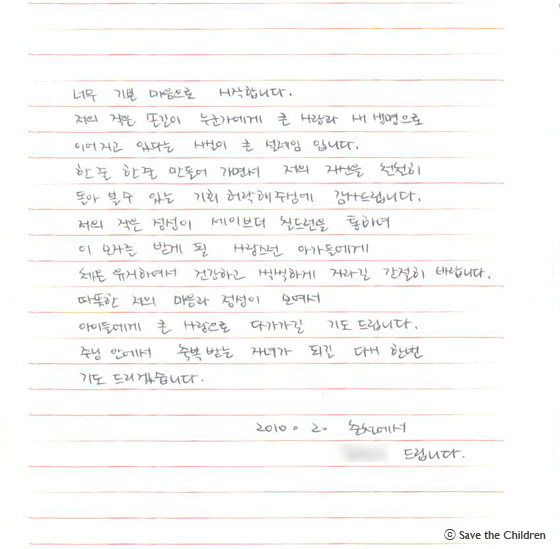 너무 기쁜 마음으로 시작합니다.
저의 작은 뜨임이 누군가에게 큰 사랑과 새 생명으로
이어지고 있다는 사실이 큰 설레임 입니다.
한 줄 한 줄 만들어 가면서 저의 자신을 천천히
돌아 볼 수 있는 기회 허락해 주심에 감사드립니다.
저의 작은 정성이 세이브더 칠드런을 통하여
이 모자를 받게 될 사랑스런 아가들에게
체온 유지하여서 건강하고 씩씩하게 자라길 간절히 바랍니다.
따뜻한 저의 마음과 정성이 모여서
아이들에게 큰 사랑으로 다가가길 기도 드립니다.
주님 안에서 축복 받는 자녀가 되길 다시 한번
기도 드리겠습니다.
2010. 2. 에서
드립니다.
ⓒ Save the Children